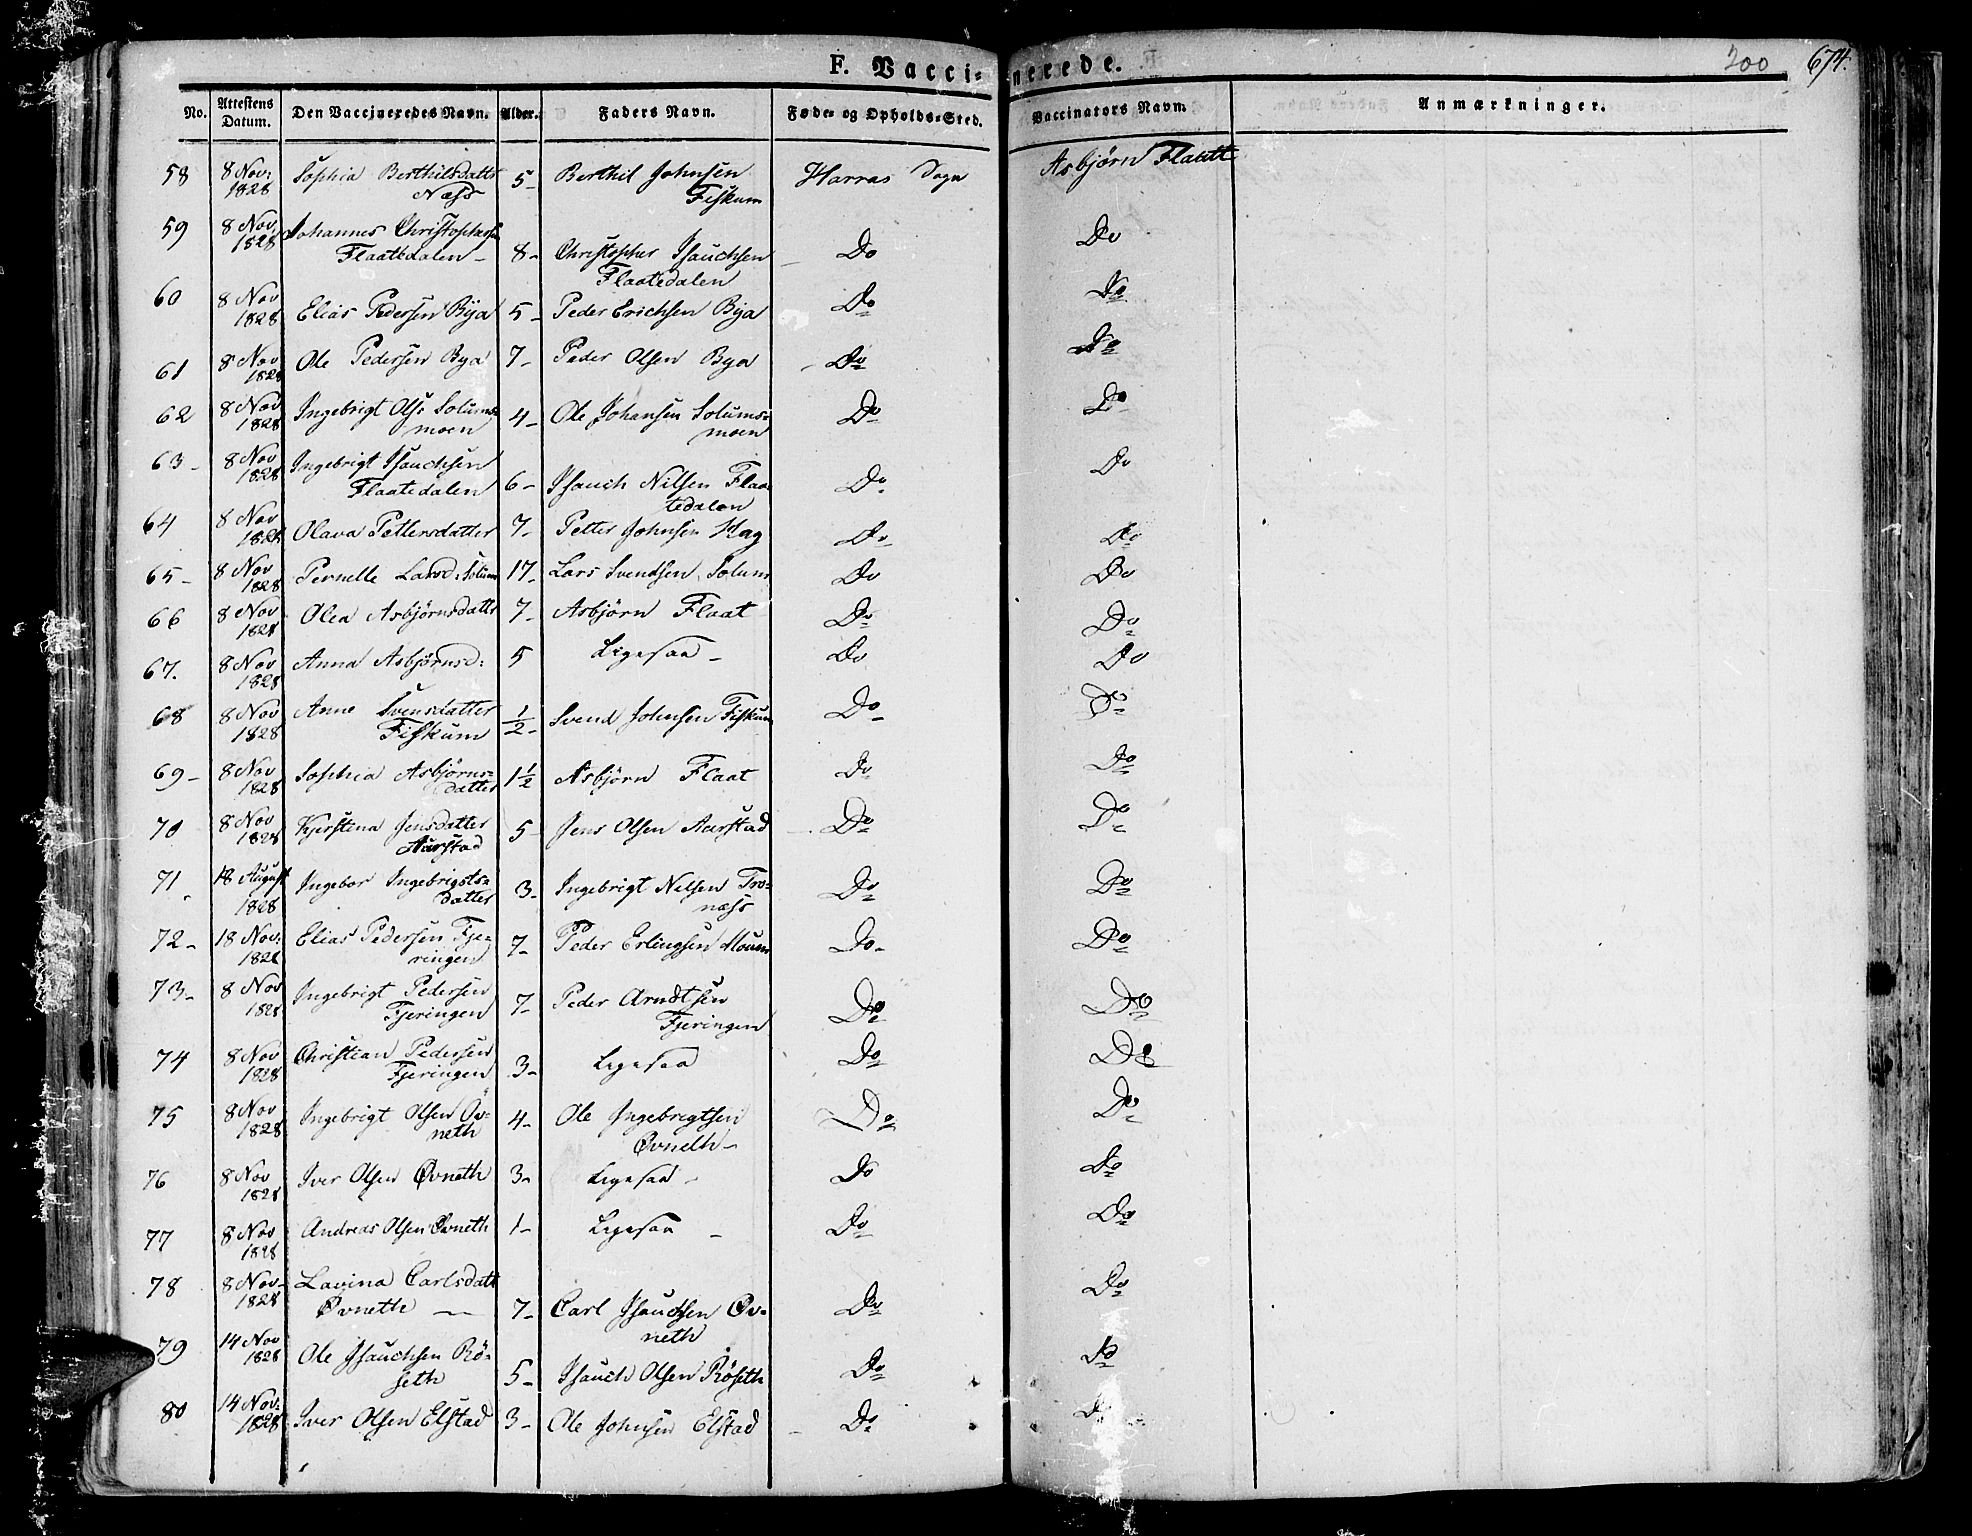 F. Vaccinerede. 200 674.
No. Attestens Datum. Den Vaccineredes Navn. Alder. Faders Navn. Føde- og Opholds-Sted. Vaccinators Navn. Anmærkninger.
58 8 Nov: 1828 Sophia Berthilsdattr Næss 5- Berthil Johnsen Fiskum Harras Sogn Asbjørn Flaatt
59 8 Nov. 1828 Johannes Christophersen Flaatedalen- 8- Christopher Isauchsen Flaatedalen Do Do
60 8 Nov 1828 Elias Pedersen Bya 5- Peder Erichsen Bya Do Do
61 8 Nov 1828 Ole Pedersen Bya 7- Peder Olsen Bya Do Do
62 8 Nov 1828 Ingebrigt Ols: Solums=moen 4- Ole Johansen Solums=moen Do Do
63- 8 Nov 1828 Ingebrigt Isauchsen Flaatedalen 6- Isauch Nilsen Flaatedalen Do Do
64 8 Nov 1828 Olava Pettersdatter 7- Petter Johnsen Hag Do Do
65- 8 Nov 1828 Pernelle Larsd: Solum 17- Lars Svendsen Solum Do Do
66 8 Nov 1828 Olea Asbjørnsdattr 7- Asbjørn Flaat Do Do
67. 8 Nov 1828 Anna Asbjørnsd: 5 Ligesaa- Do Do
68 8 Nov 1828 Anne Svensdatter Fiskum ½- Svend Johnsen Fiskum Do Do
69- 8 Nov 1828 Sophia Asbjørns=datter 1½ Asbjørn Flaat Do Do
70 8 Nov 1828 Kjerstina Jensdatter Aarstad 5- Jens Olsen Aarstad Do Do
71 18 August 1828 Ingebor Ingebrigts=datter 3- Ingebrigt Nilsen Tro=næss Do Do
72- 18 Nov: 1828 Elias Pedersen Fje=ringen 7- Peder Erlingsen Moum Do Do
73- 8 Nov 1828 Ingebrigt Pedersen Fjeringen 7- Peder Arndtsen Fjeringen Do Do
74 8 Nov 1828 Christian Pedersen Fjeringen 3- Ligesaa Do Do
75 8 Nov 1828 Ingebrigt Olsen Øv=neth 4- Ole Ingebrigtsen Øvneth- Do Do
76 8 Nov 1828 Iver Olsen Øvneth 3- Ligesaa- Do Do
77 8 Nov 1828 Andreas Olsen Øvneth 1- Ligesaa - Do Do
78 8 Nov- 1828 Lavina Carlsdatt Øvneth — 7- Carl Isauchsen Øv=neth Do Do
79 14 Nov 1828 Ole Isauchsen Rö=seth 5- Isauch Olsen Röseth Do Do
80 14 Nov: 1828 Iver Olsen Elstad 3- Ole Johnsen Elstad Do Do